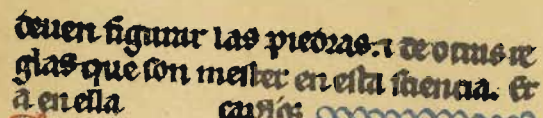 deuen figurar las piedras. ⁊ de otras re
glas que son mester en esta sciencia. Et
a en ella